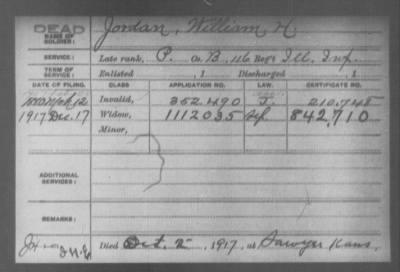 DEAD
NAME OF SOLDIER: Jordan, William H
SERVICE: Late rank, P. Co. B, 116 Reg't Ill. Inf.
TERM OF SERVICE: Enlisted , 1 Discharged , 1
DATE OF FILING. CLASS. APPLICATION NO. LAW. CERTIFICATE NO.
12 Invalid, 352.490 J. 210.745
1917 Dec. 17 Widow, 1112035 842,710
Minor,
ADDITIONAL SERVICES:
REMARKS:
Died Oct. 2 , 1917, at Sawyer Kans.